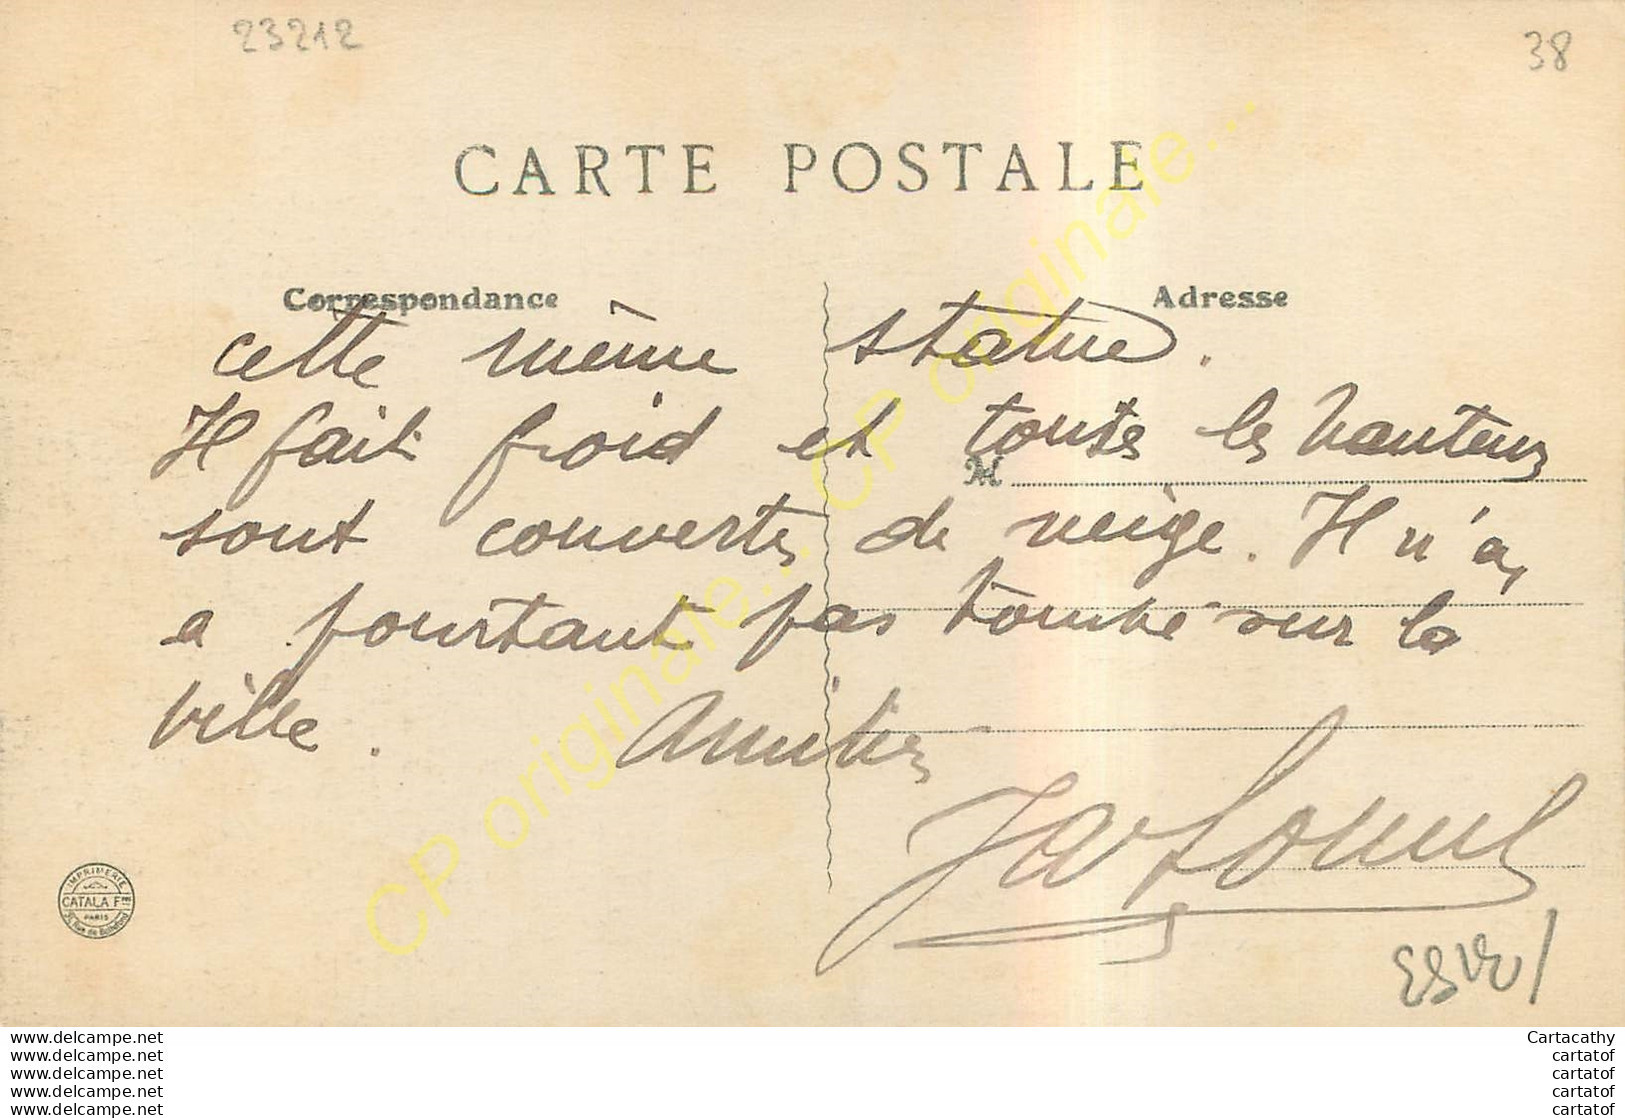 23212
38
CARTE POSTALE
Correspondance
Adresse
cette même statue.
Il fait froid et toutes les hauteurs
M
sont couvertes de neige. Il n'a,
a pourtant pas tombé sur la
ville. Amitiés
IMPRIMERIE
CATALA Fres
PARIS
CP originale... CP originale... CP originale...
www.delcampe.net
www.delcampe.net
www.delcampe.net
www.delcampe.net
www.delcampe.net
Cartacathy
cartatof
cartatof
cartatof
cartatof